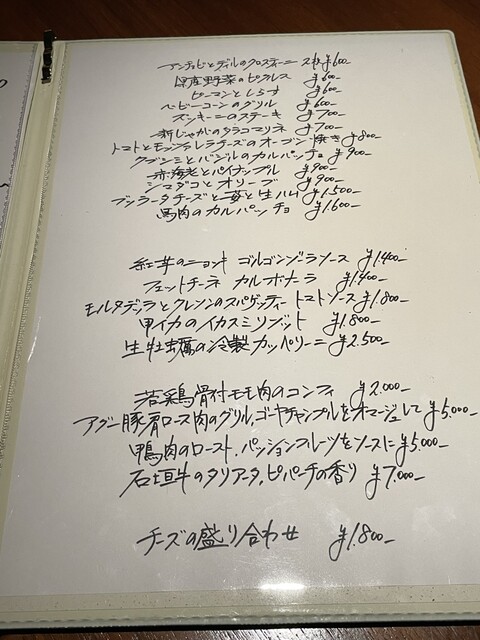 アンチョビとディルのクロスティーニ 2枚 ¥600-
県産野菜のピクルス ¥600-
ピーマンとしらす ¥600-
ベビーコーンのグリル ¥600-
ズッキーニのステーキ ¥700-
新じゃがのタラコマリネ ¥700-
トマトとモッツァレラチーズのオーブン焼き ¥800-
クブシミとバジルのカルパッチョ ¥900-
赤海老とパイナップル ¥900-
シマダコとオリーブ ¥900-
ブッラータチーズと苺と生ハム ¥1,500-
馬肉のカルパッチョ ¥1,600-
紅芋のニョッキ ゴルゴンゾーラソース ¥1,400-
フェットチーネ カルボナーラ ¥1,400-
モルタデッラとクレソンのスパゲッティー トマトソース ¥1,800-
甲イカのイカスミリゾット ¥1,800-
生牡蠣の冷製カッペリーニ ¥2,500-
若鶏骨付モモ肉のコンフィ ¥2,000-
アグー豚肩ロース肉のグリル ゴーヤチャンプルをオマージュして ¥5,000-
鴨肉のロースト, パッションフルーツをソースに ¥5,000-
石垣牛のタリアータ, ピパーチの香り ¥7,000-
チーズの盛り合わせ ¥1,800-